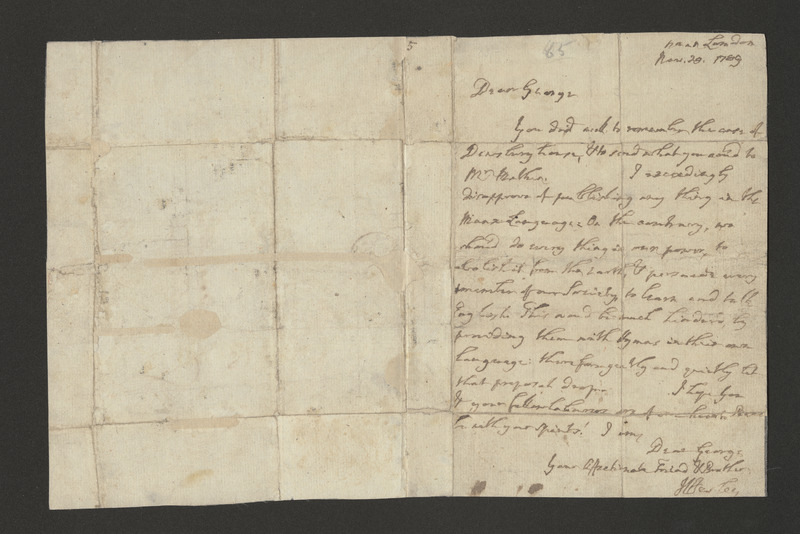 5
65
near London
Nov. 28. 1789
Dear George
You did well to remember the case of
Dewsbury house, & to send what you could to
Mr Mather. I exceedingly
disapprove of publishing any thing in the
Manx Language: On the contrary, we
shoud do every thing in our power, to
abolish it from the earth, & persuade every
member of our Society to learn and talk
English. This woud be much hinderd, by
providing them with Hymns in their own
Language: therefore gently and quietly let
that proposal drop. I hope You
& your fellow labourers are of one heart
be with your Spirits! I am,
Dear George,
Your Affectionate Friend & Brother
JWesley